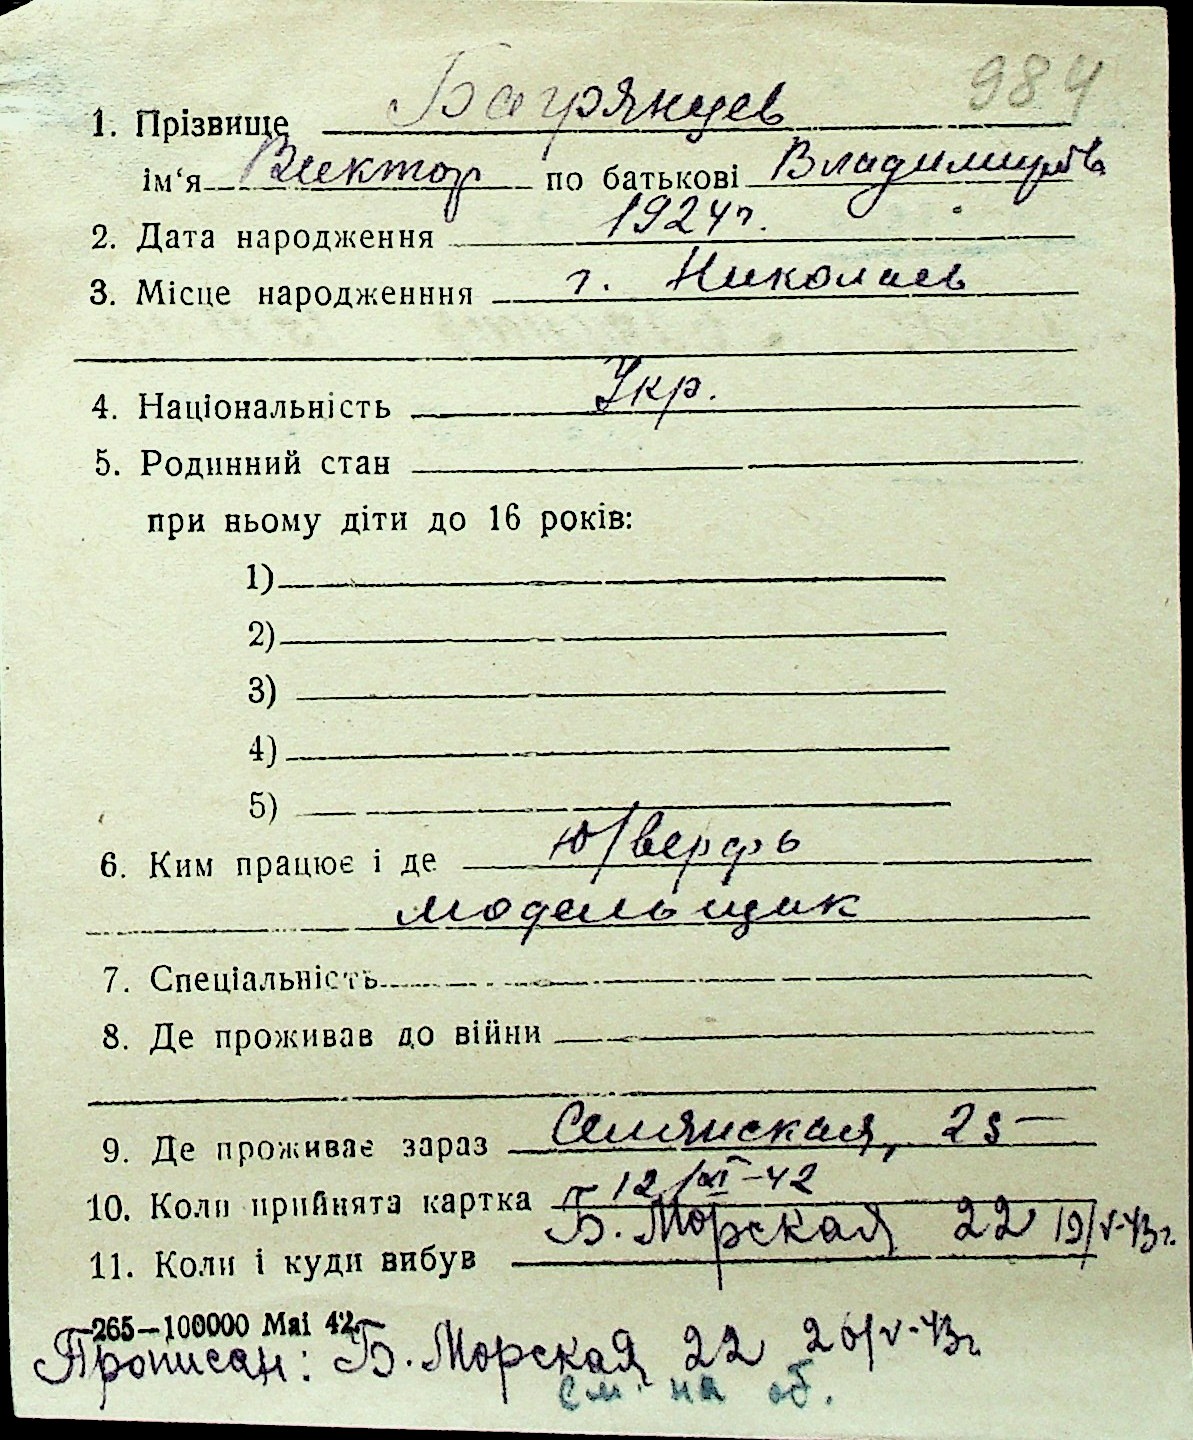 984
1. Прізвище Багрянцев
ім‘я Виктор по батькові Владимиров
2. Дата народження 1924 г.
3. Місце народженння г. Николаев
4. Національність Укр.
5. Родинний стан
при ньому діти до 16 років:
1)
2)
3)
4)
5)
6. Ким працює і де Ю/верфь
модельщик
7. Спеціальність
8. Де проживав до війни
9. Де проживає зараз 25
10. Коли прийнята картка 12/XI-42
Б. Морская 22 19/V-43г.
11. Коли і куди вибув
265—100000 Mai 42
Прописан: Б. Морская 22 20/V-43г.
см. на об.